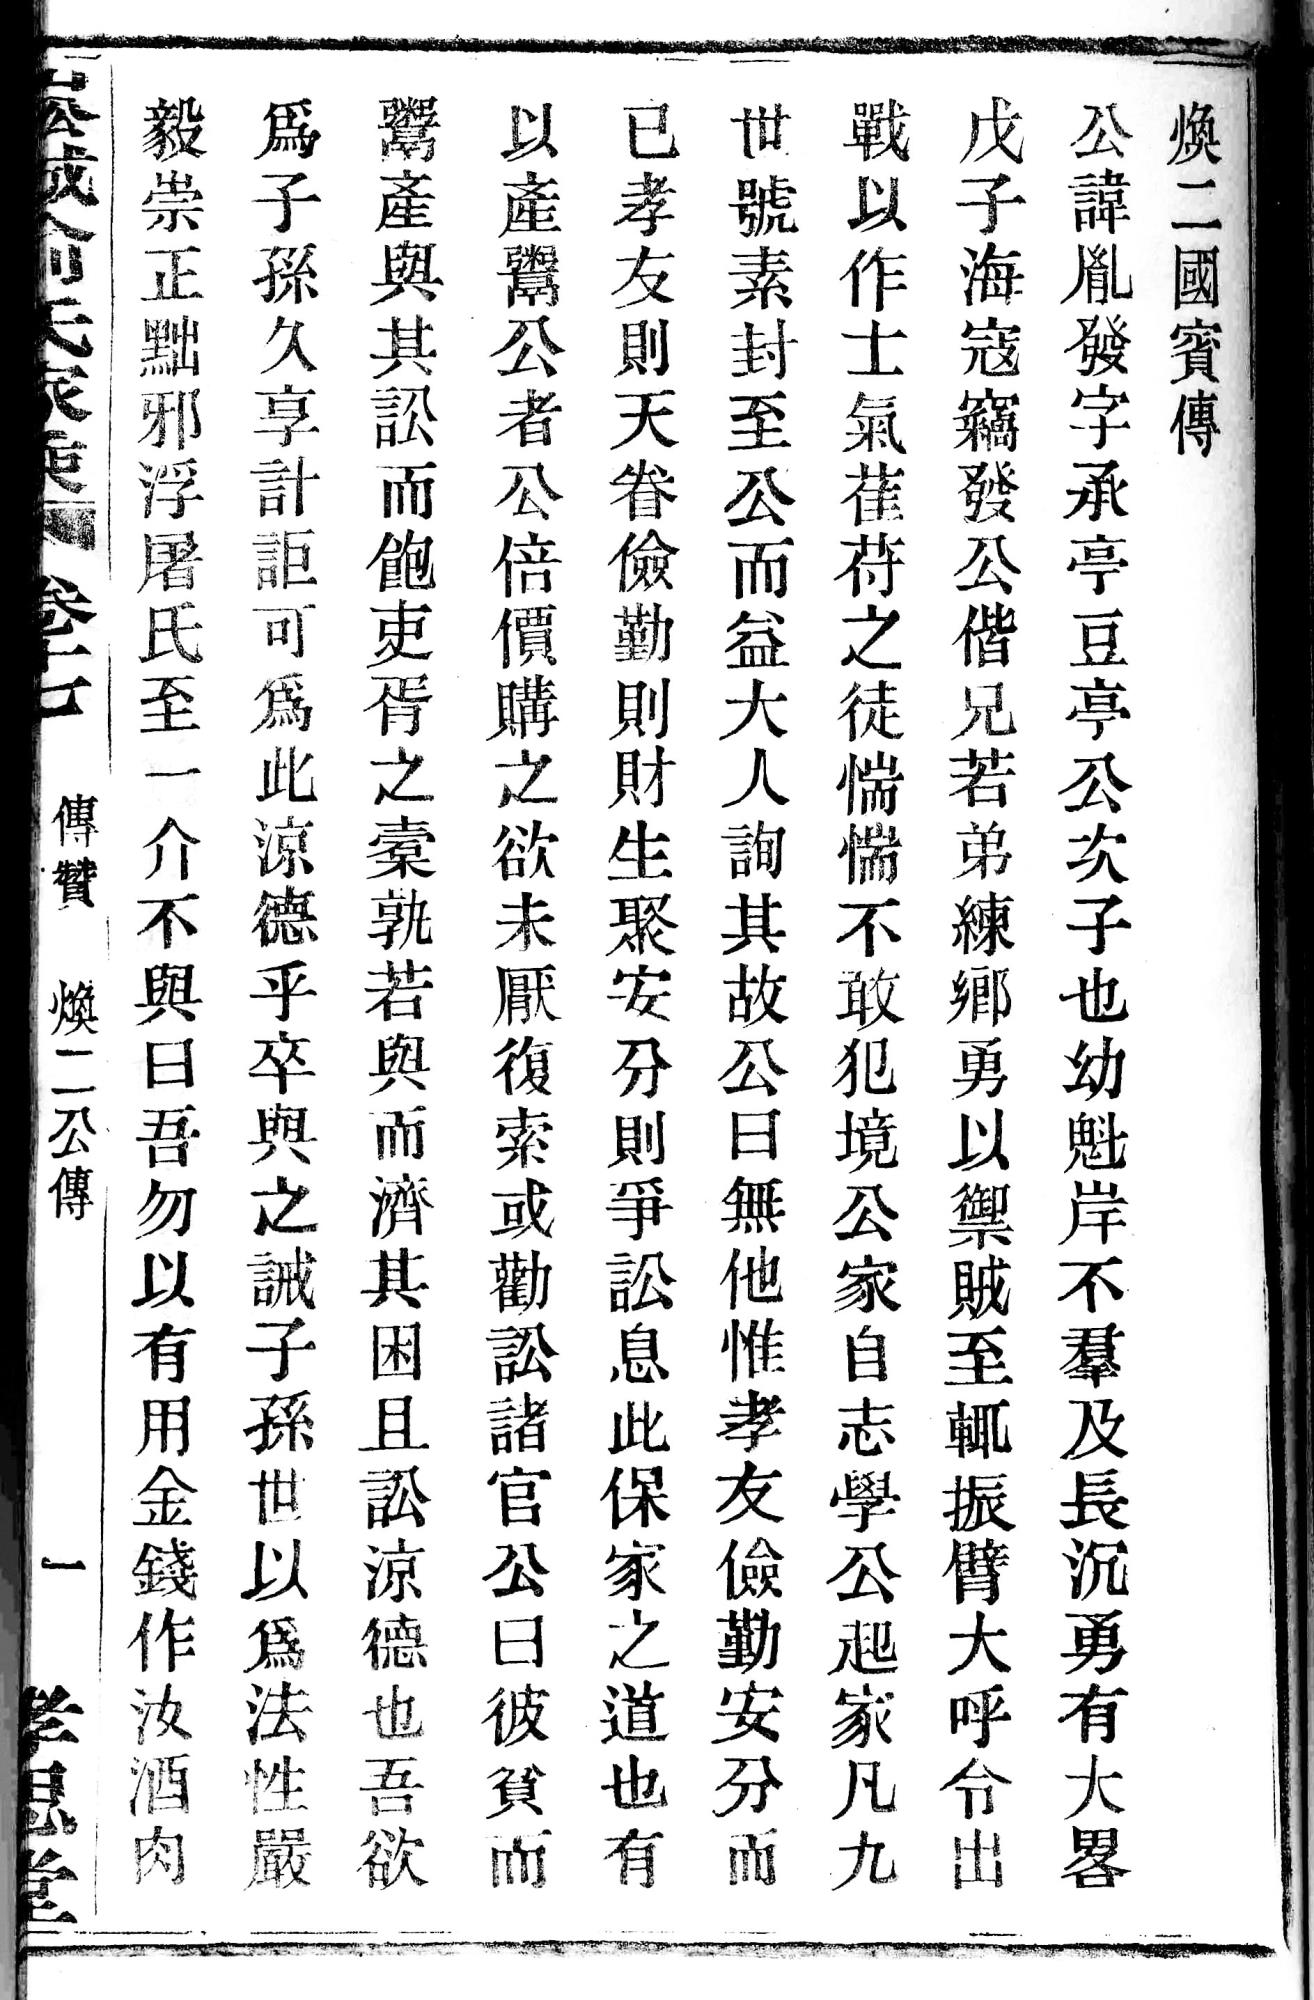 煥二國賓傳
公諱胤發字承亭豆亭公次子也幼魁岸不羣及長沉勇有大畧
戊子海寇竊發公偕兄若弟練鄉勇以禦賊至輒振臂大呼令出
戰以作士氣萑苻之徒惴惴不敢犯境公家自志學公起家凡九
世號素封至公而益大人詢其故公曰無他惟孝友儉勤安分而
已孝友則天眷儉勤則財生聚安分則爭訟息此保家之道也有
以產鬻公者公倍價購之欲未厭復索或勸訟諸官公曰彼貧而
鬻產與其訟而飽吏胥之橐孰若與而濟其困且訟涼德也吾欲
爲子孫久享計詎可爲此涼德乎卒與之誡子孫世以爲法性嚴
毅崇正黜邪浮屠氏至一介不與曰吾勿以有用金錢作汝酒肉
俞氏家乘 卷十七 傳贊 煥二公傳 一 孝思堂